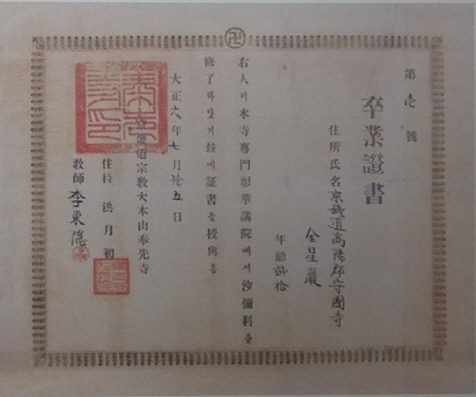 卍
第壱號
卒業證書
住所氏名京畿道高陽郡守國寺
金星巖
年齢拾
右人이本寺專門彰華講院에서沙彌科를
修了하얏기玆에証書를授與홈
大正六年七月拾五日
京畿道宗教大本山奉先寺
住持 洪月初
教師 李東